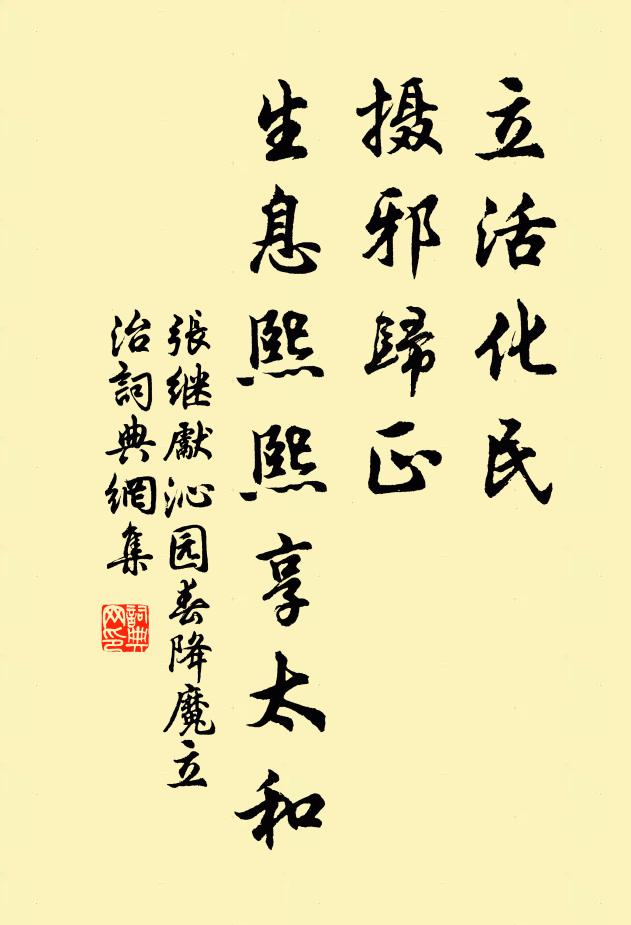 立活化民
摄邪歸正
生息熙熙享太和
張继獻沁园春降魔立
治詞典網集
詞典網印